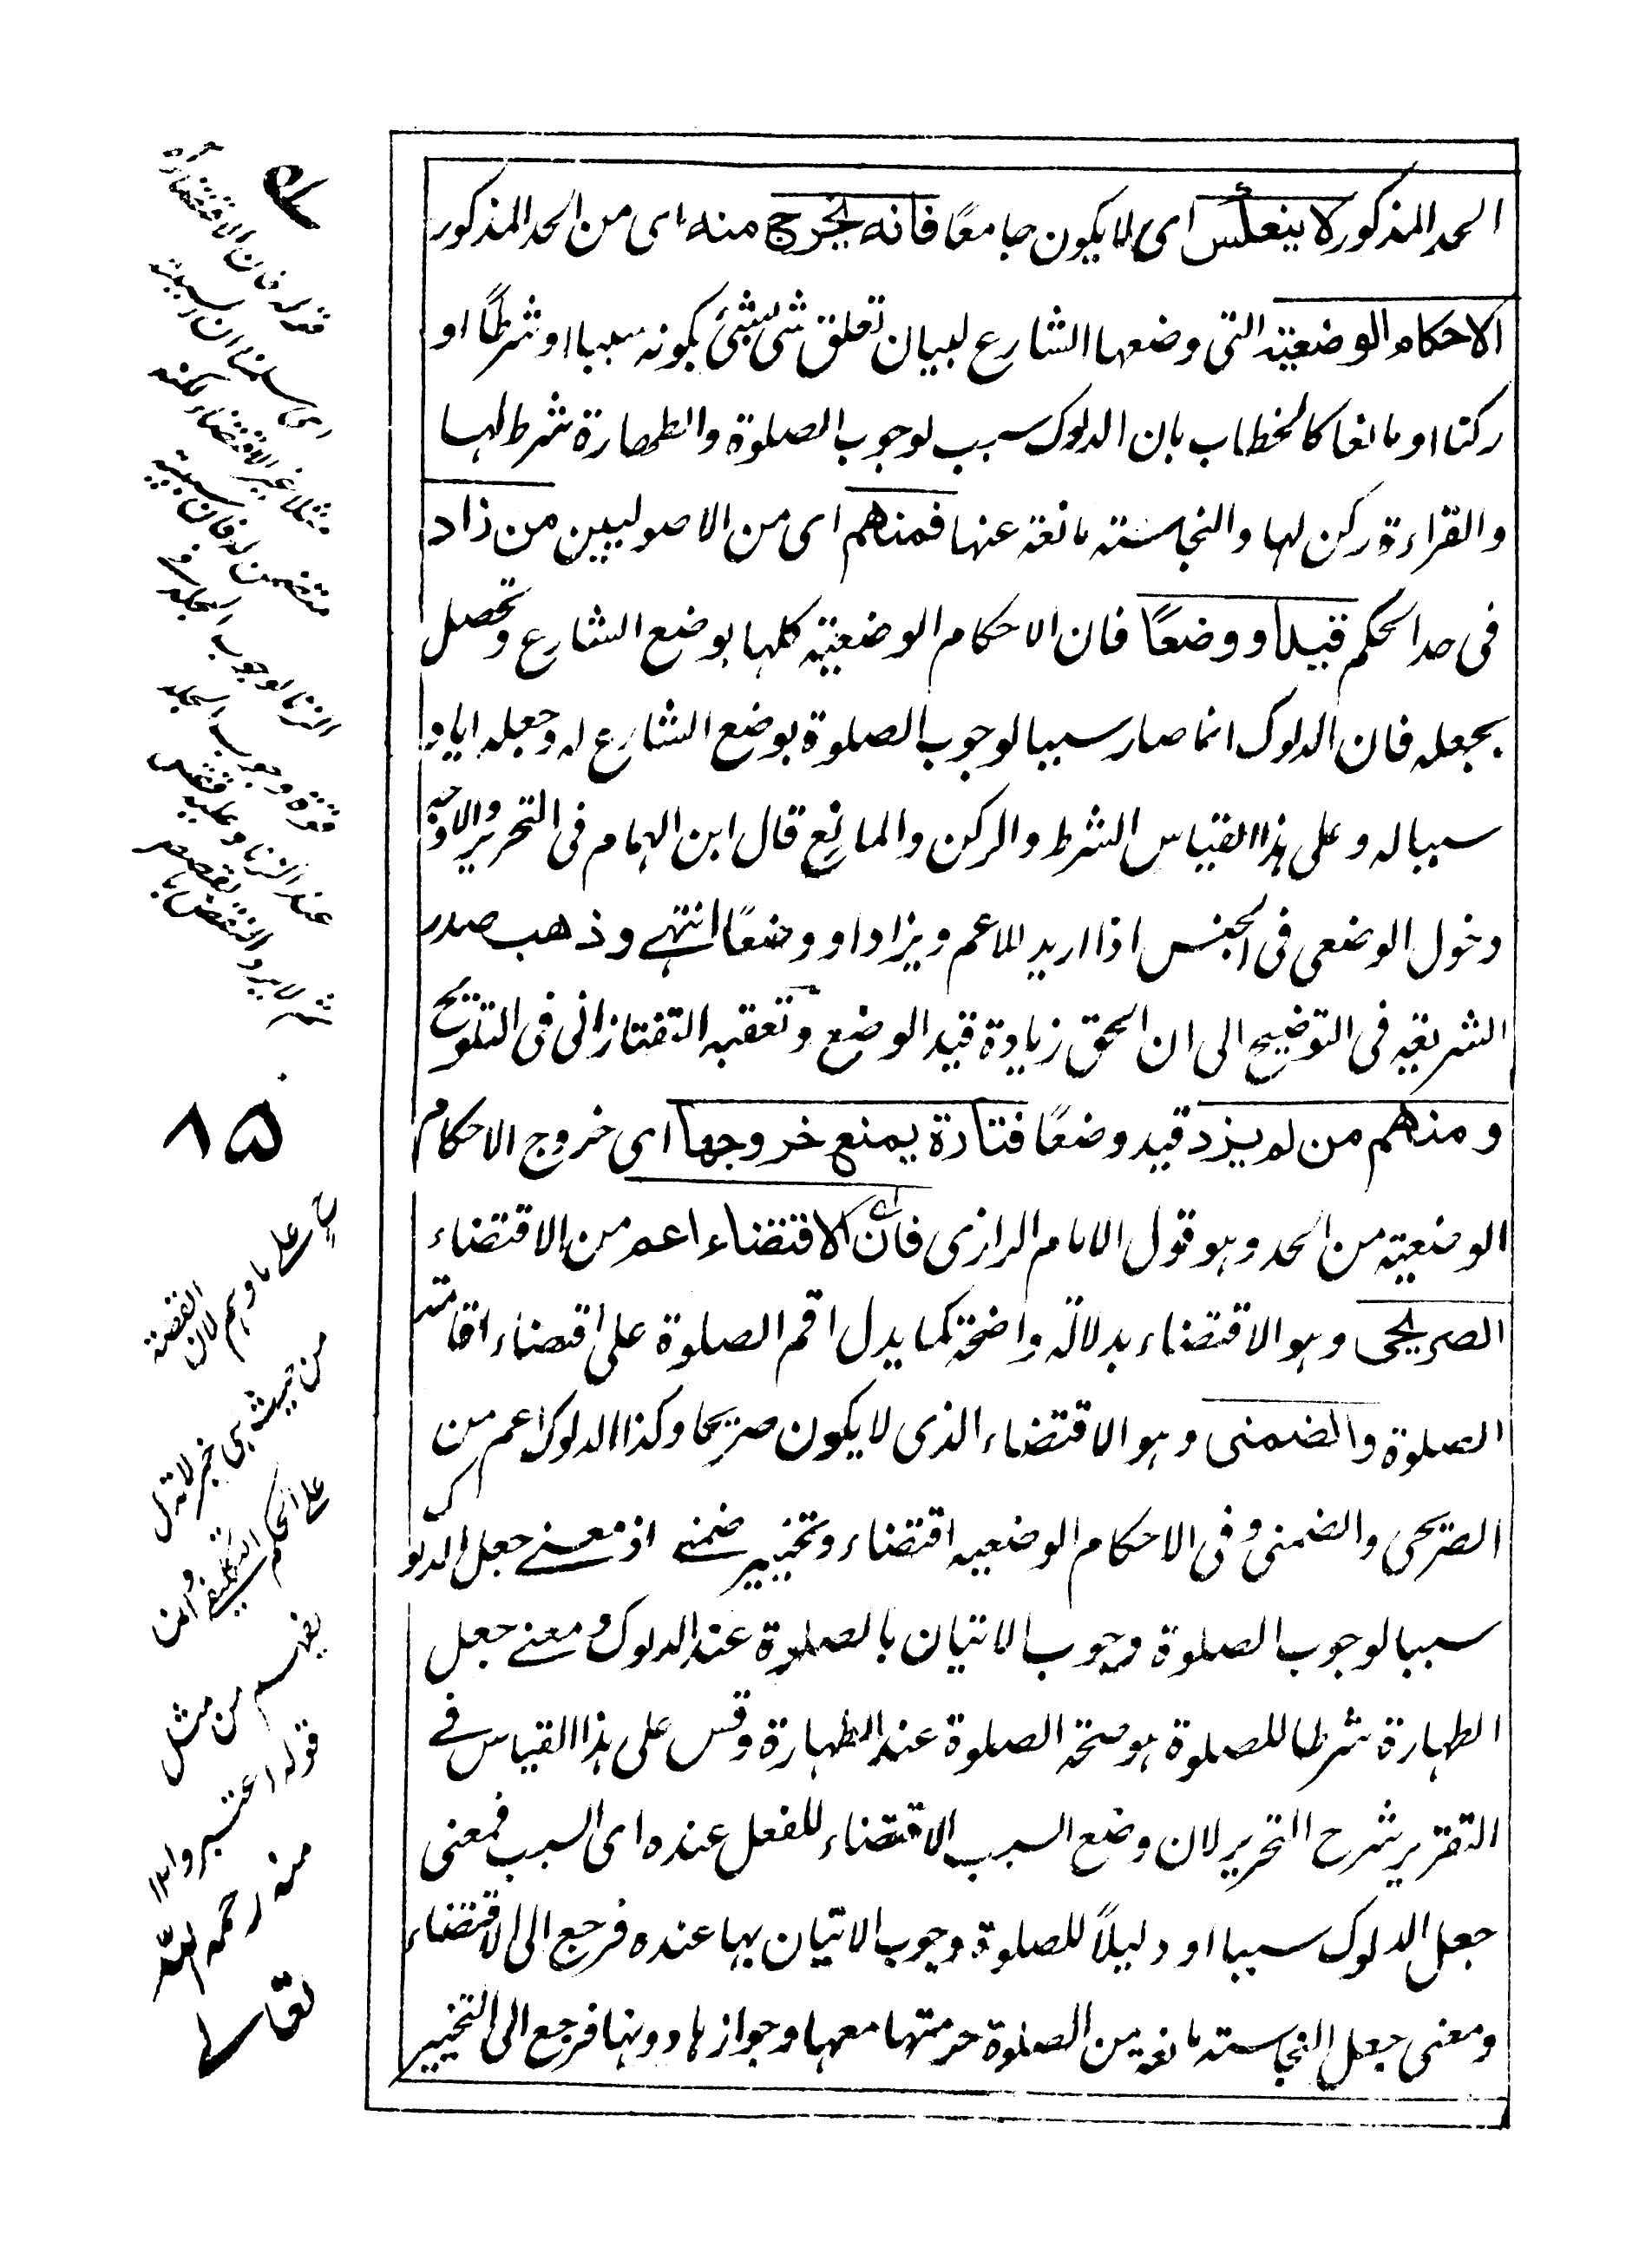 الحد المذكور لا ينعكس اى لا يكون جامعًا فانه يخرج منه اى من الحد المذكور
الاحكام الوضعية التى وضعها الشارع لبيان تعلق شى بشئ بكونه سببا او شرطًا او
ركنا او مانعا كالخطاب بان الدلوك سبب لوجوب الصلوة والطهارة شرط لها
والقراءة ركن لها والنجاسته مانعة عنها فمنهم اى من الاصوليين من زاد
فى حد الحكم قيد او وضعًا فان الاحكام الوضعية كلها بوضع الشارع وتحصل
بجعله فان الدلوك انما صار سببا لوجوب الصلوة بوضع الشارع له وجعله اياه
سببا له وعلى هذا القياس الشرط والركن والمانع قال ابن الهمام فى التحرير والاوجه
دخول الوضعى فى الجنس اذا اريد للاعم ويزاد او وضعًا انتهى وذهب صدر
الشريعة فى التوضيح الى ان الحق زيادة قيد الوضع وتعقبه التفتازانى فى التلويح
ومنهم من لم يزد قيد وضعًا فتارة يمنع خروجها اى خروج الاحكام
الوضعية من الحد وهو قول الامام الرازى فان الاقتضاء اعم من الاقتضاء
الصريحى وهو الاقتضاء بدلالة واضحة كما يدل اقم الصلوة على اقتضاء اقامته
الصلوة والضمنى وهو الاقتضاء الذى لا يكون صريحا وكذا الدلوك اعم من
الصريحى والضمنى وفى الاحكام الوضعيه اقتضاء وتخيير ضمنے اذ معنے جعل الدلوك
سببا لوجوب الصلوة وجوب الاتيان بالصلوة عند الدلوك ومعنے جعل
الطهارة شرطا للصلوة هو صحة الصلوة عند الطهارة وقس على هذا القياس فے
التقرير شرح التحرير لان وضع السبب الاقتضاء للفعل عنده اى السبب فمعنى
جعل الدلوك سببا او دليلاً للصلوة وجوب الاتيان بها عنده فرجع الى الاقتضاء
ومعنى جعل النجاسته مانعة من الصلوة حرمتها معها وجوازها دونها فرجع الى التخيير
الزنا لوجوب الجلد
عند الزنا وعليه فقس
٨٥
من حيث هى خبر لا تدل
على الحكم
يفهم من مثل
قوله اعتبروا
منه رحمه الله
تعالے